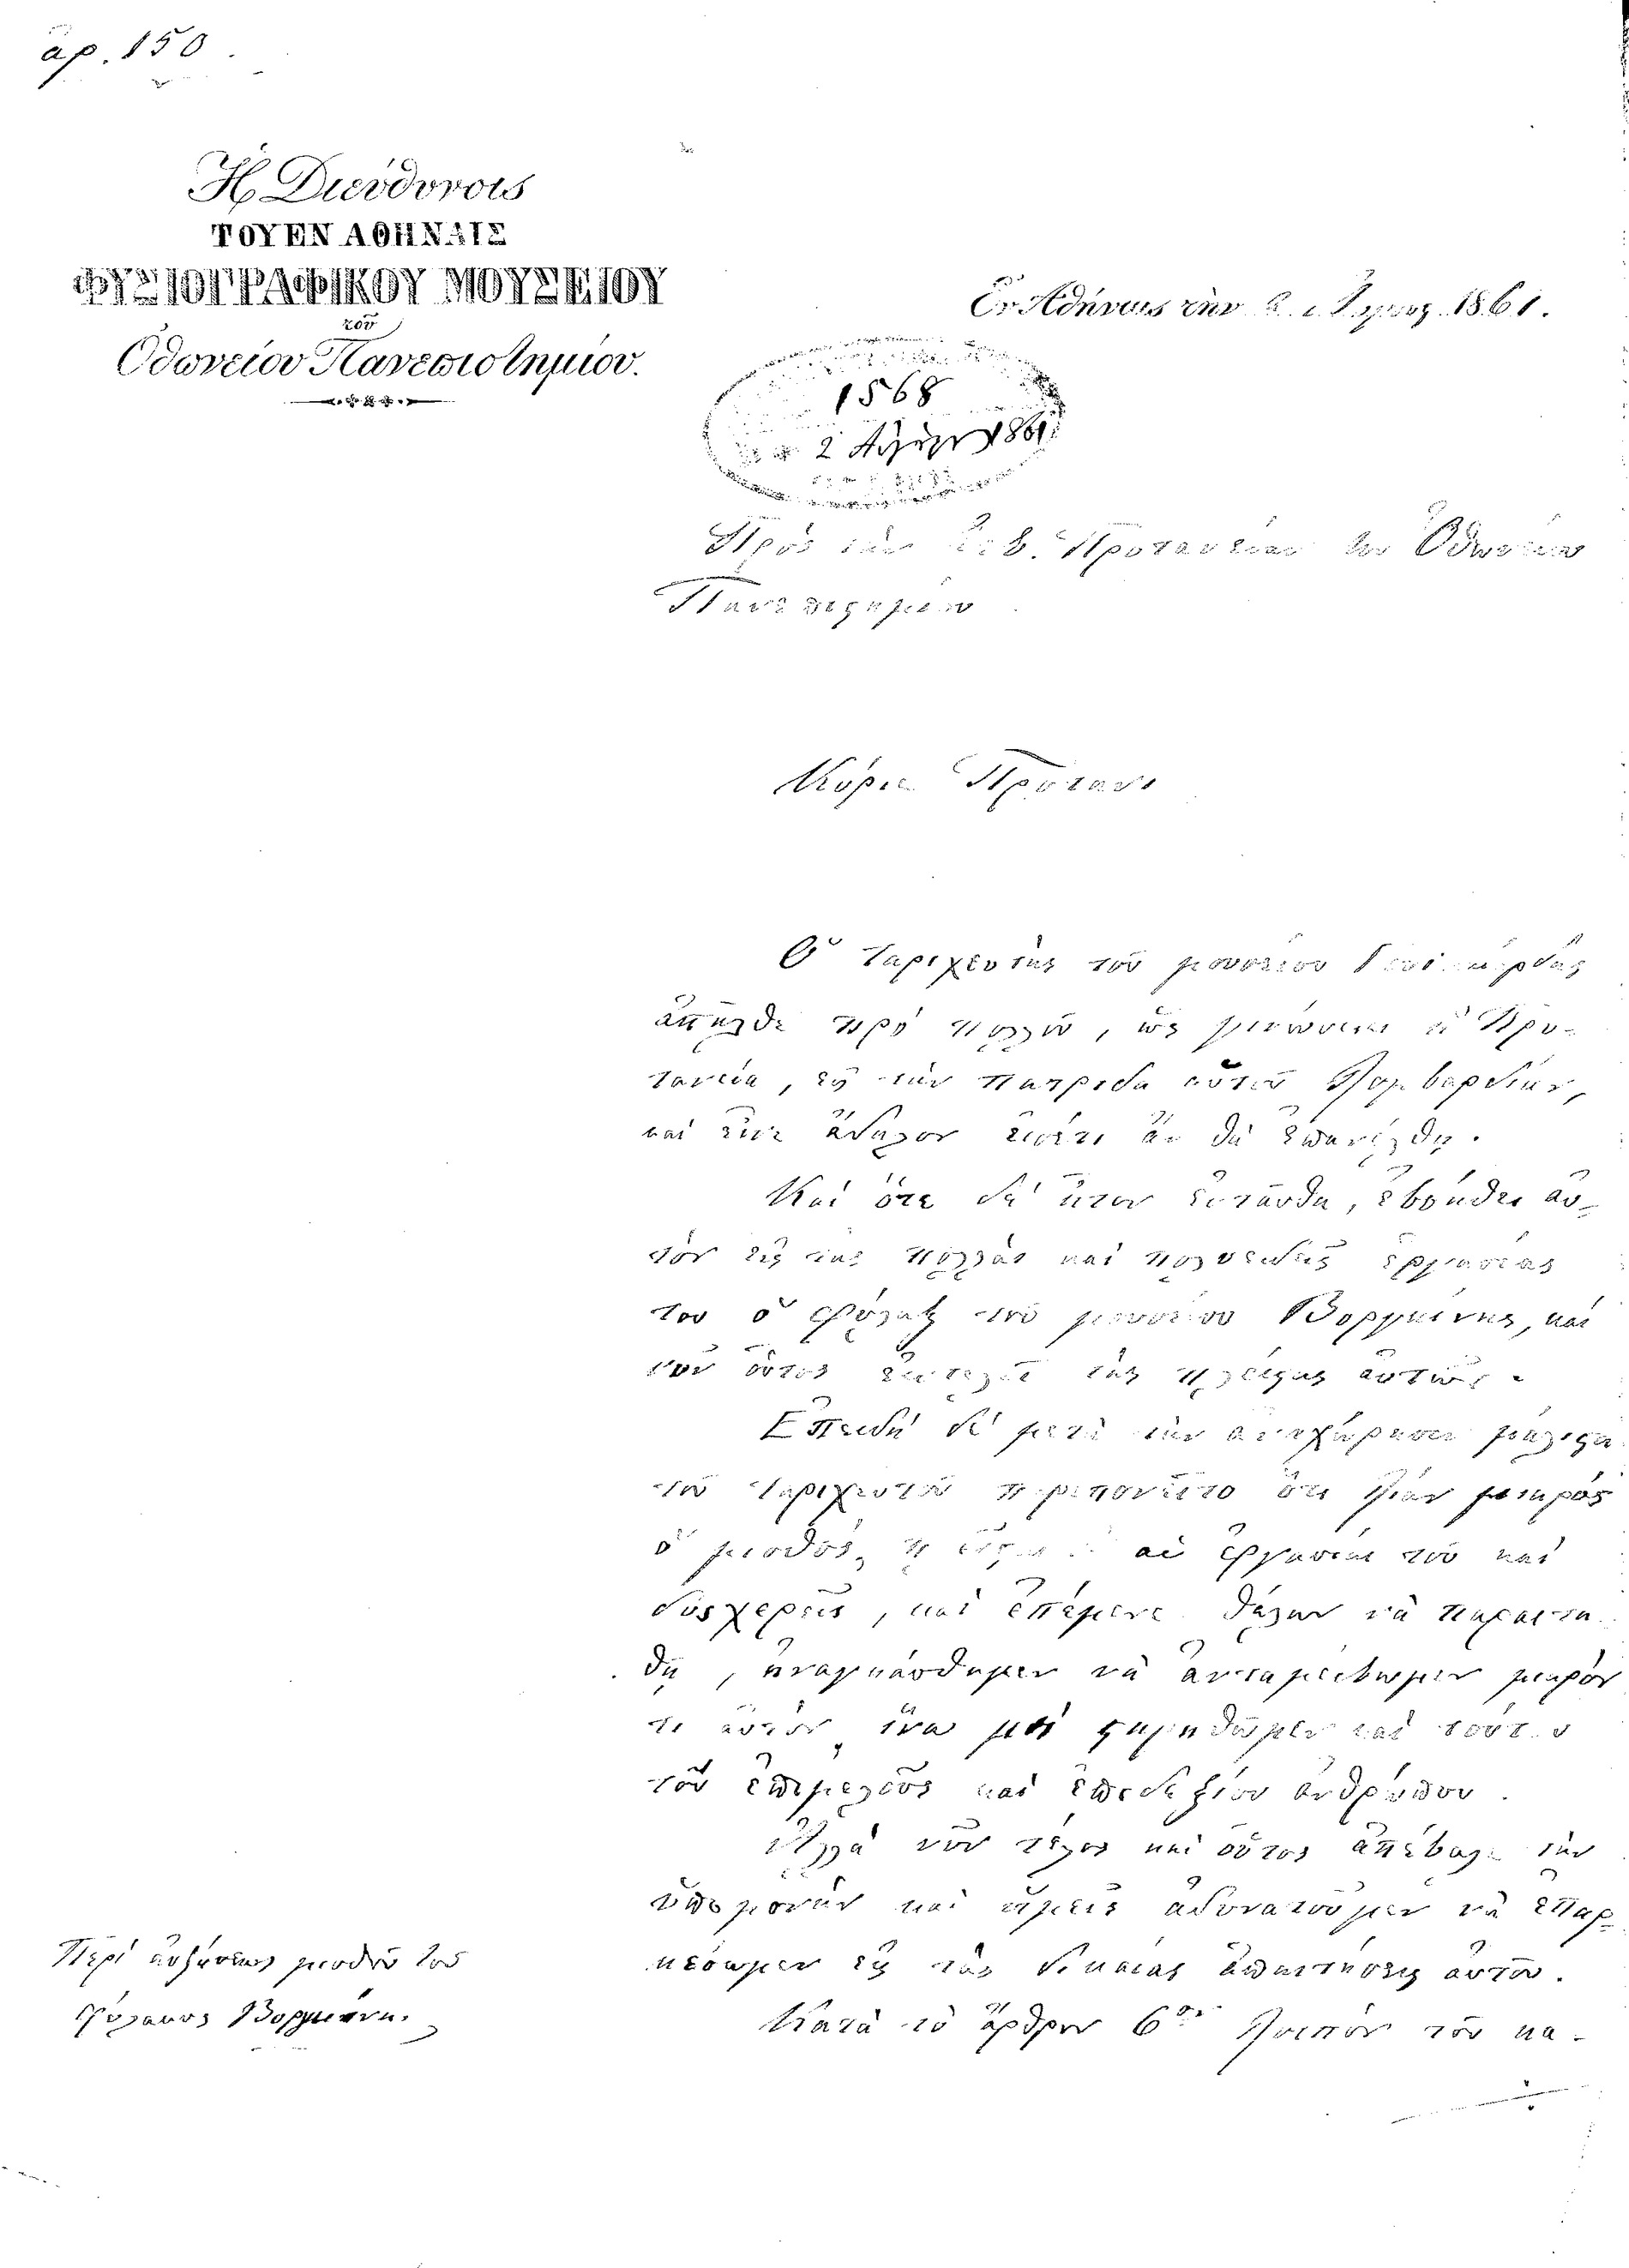 ἀρ. 150
Ἡ Διεύθυνσις
ΤΟΥ ΕΝ ΑΘΗΝΑΙΣ
ΦΥΣΙΟΓΡΑΦΙΚΟΥ ΜΟΥΣΕΙΟΥ
τοῦ
Ὀθωνείου Πανεπιστημίου.
Ἐν Ἀθήναις τὴν 2 1861.
1568
2 1861
Πρὸς τὴν Πρυτανείαν τοῦ Ὀθωνείου
Πανεπιστημίου
Κύριε Πρύτανι
Ὁ ταριχευτὴς τοῦ μουσείου
ἀπῆλθε πρὸ πολλοῦ, ὡς γινώσκει ἡ Πρυ-
τανεία, εἰς τὴν πατρίδα αὑτοῦ Λομβαρδίαν,
καὶ εἶνε ἄδηλον εἰσέτι ἂν θὰ ἐπανέλθῃ.
Καὶ ὅτε δὲ ἦτον ἐνταῦθα, ἐβοήθει αὐ-
τὸν εἰς τὰς πολλὰς καὶ πολυειδεῖς ἐργασίας
του ὁ φύλαξ τοῦ μουσείου Βοργκίνης, καὶ
νῦν οὗτος ἐκτελεῖ τὰς πλείστας αὐτῶν.
Ἐπειδὴ δὲ μετὰ τὴν ἀναχώρησιν μάλιστα
τοῦ ταριχευτοῦ παρεπονεῖτο ὅτι λίαν μικρὸς
ὁ μισθός, αἱ ἐργασίαι του καὶ
δυσχερεῖς, καὶ ἐπέμενε θέλων νὰ παραιτη-
θῇ, ἠναγκάσθημεν νὰ ἀνταμείψωμεν μικρόν
τι αὐτόν, ἵνα μὴ στερηθῶμεν καὶ τούτου
τοῦ ἐπιμελοῦς καὶ ἐπιδεξίου ἀνθρώπου.
Ἀλλὰ νῦν τέλος καὶ οὗτος ἀπέβαλε τὴν
ὑπομονὴν καὶ ἡμεῖς ἀδυνατοῦμεν νὰ ἐπαρ-
κέσωμεν εἰς τὰς δικαίας ἀπαιτήσεις αὐτοῦ.
Κατὰ τὸ ἄρθρον 6ον λοιπὸν τοῦ κα-
Περὶ αὐξήσεως μισθοῦ τοῦ
φύλακος Βοργκίνη.